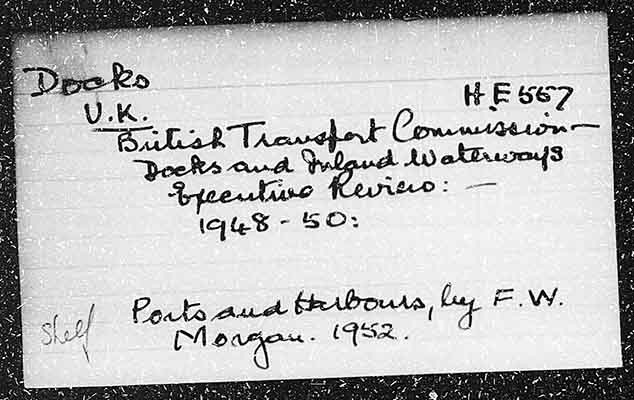 Docks
U.K.
HE 557
British Transport Commission -
Docks and Inland Waterways
Executive Review: -
1948 - 50:
Ports and Harbours, by F. W.
Shelf
Morgan. 1952.